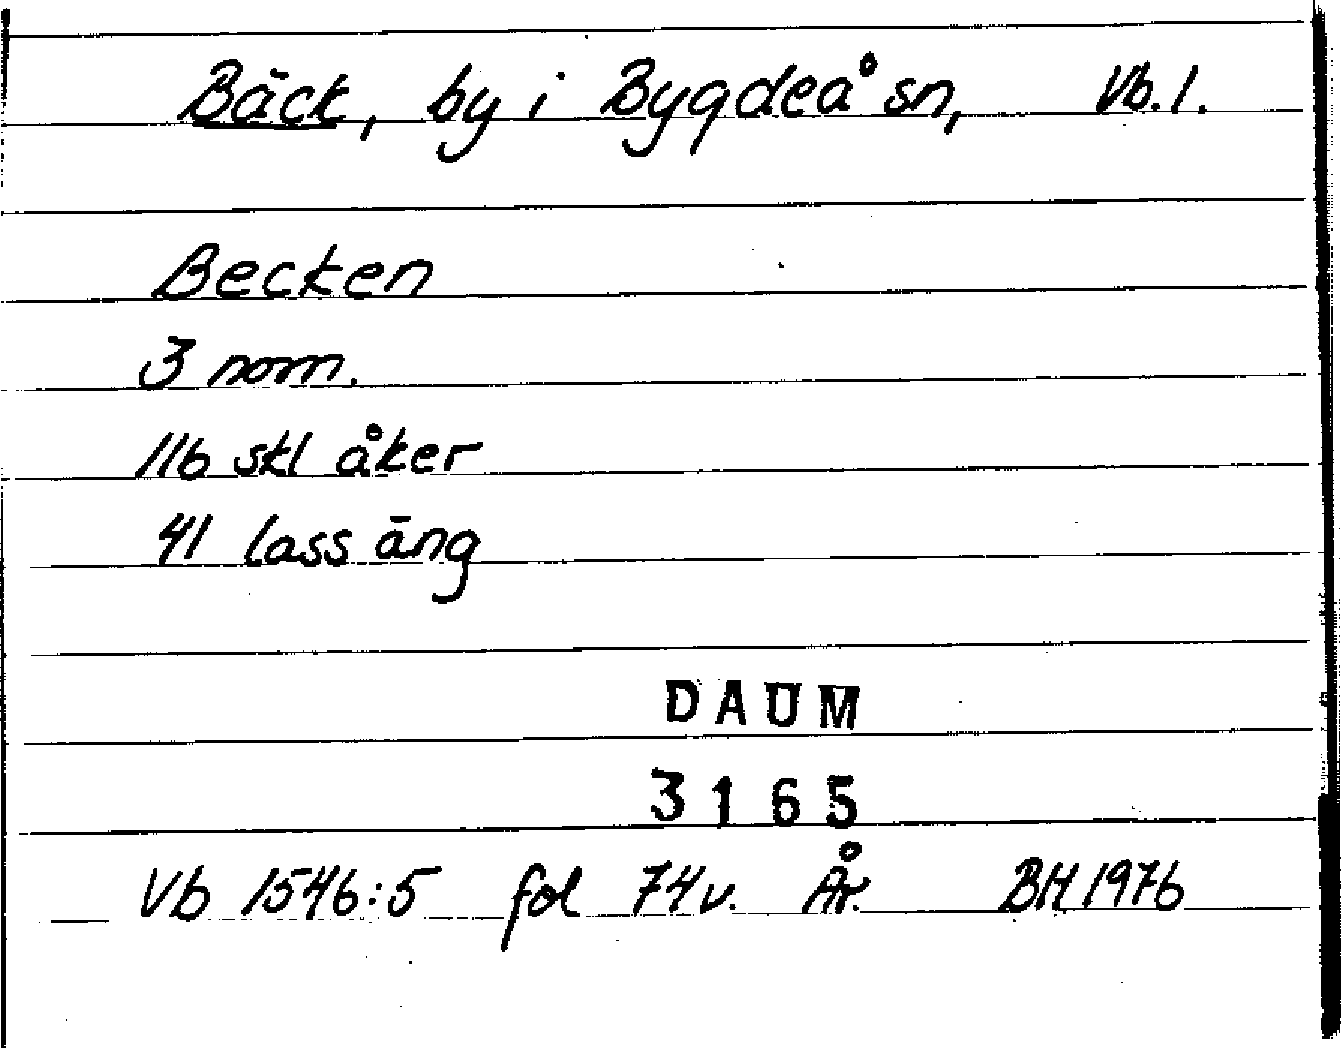 Bäck, by i Bygdeå sn, Vb. l.
Becken
3 nom.
116 skl åker
41 lass äng
DAUM
3165
Vb 1546:5 fol 74v. År. BH 1976